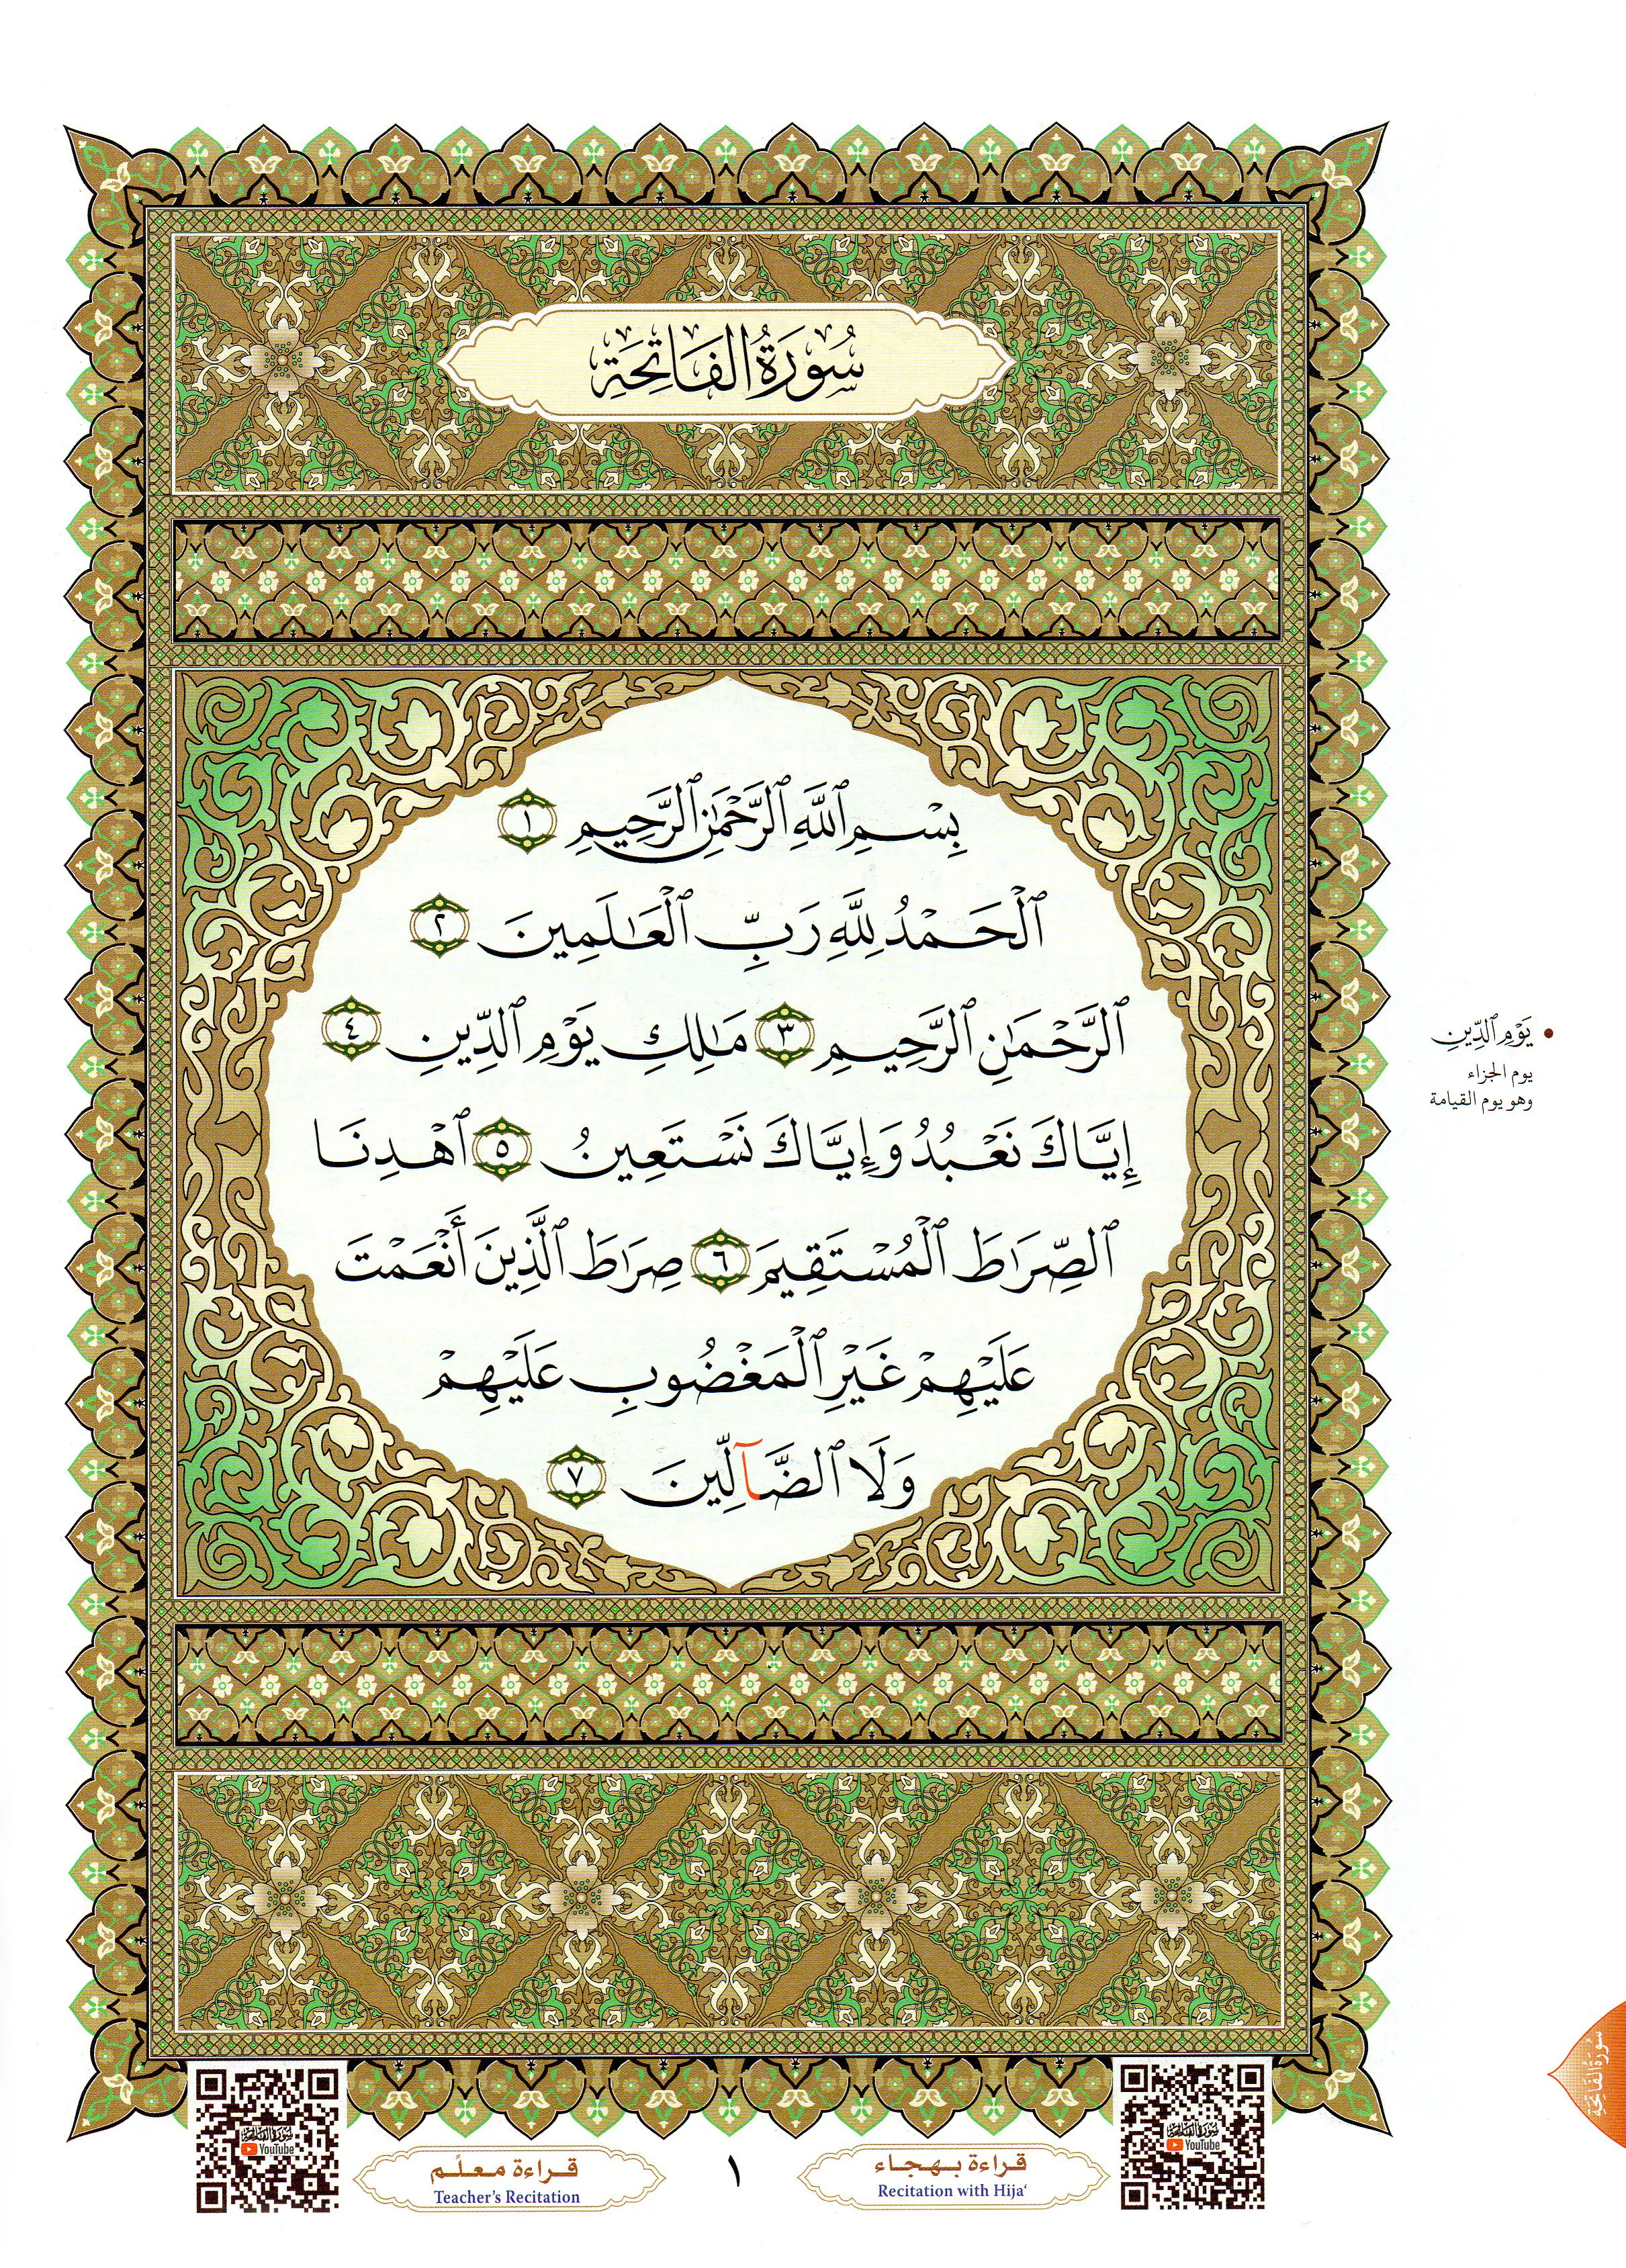 سُورَةُ الفَاتِحَةِ
بِسْمِ ٱللَّهِ ٱلرَّحْمَٰنِ ٱلرَّحِيمِ ١
ٱلْحَمْدُ لِلَّهِ رَبِّ ٱلْعَٰلَمِينَ ٢
ٱلرَّحْمَٰنِ ٱلرَّحِيمِ ٣ مَٰلِكِ يَوْمِ ٱلدِّينِ ٤
إِيَّاكَ نَعْبُدُ وَإِيَّاكَ نَسْتَعِينُ ٥ ٱهْدِنَا
ٱلصِّرَٰطَ ٱلْمُسْتَقِيمَ ٦ صِرَٰطَ ٱلَّذِينَ أَنْعَمْتَ
عَلَيْهِمْ غَيْرِ ٱلْمَغْضُوبِ عَلَيْهِمْ
وَلَا ٱلضَّآلِّينَ ٧
يَوْمِ ٱلدِّينِ
يوم الجزاء
وهو يوم القيامة
سُورَةُ الفَاتِحَةِ
سورة الفاتحة
YouTube
قراءة بهجاء
Recitation with Hija‘
١
قراءة معلّم
Teacher’s Recitation
سورة الفاتحة
YouTube